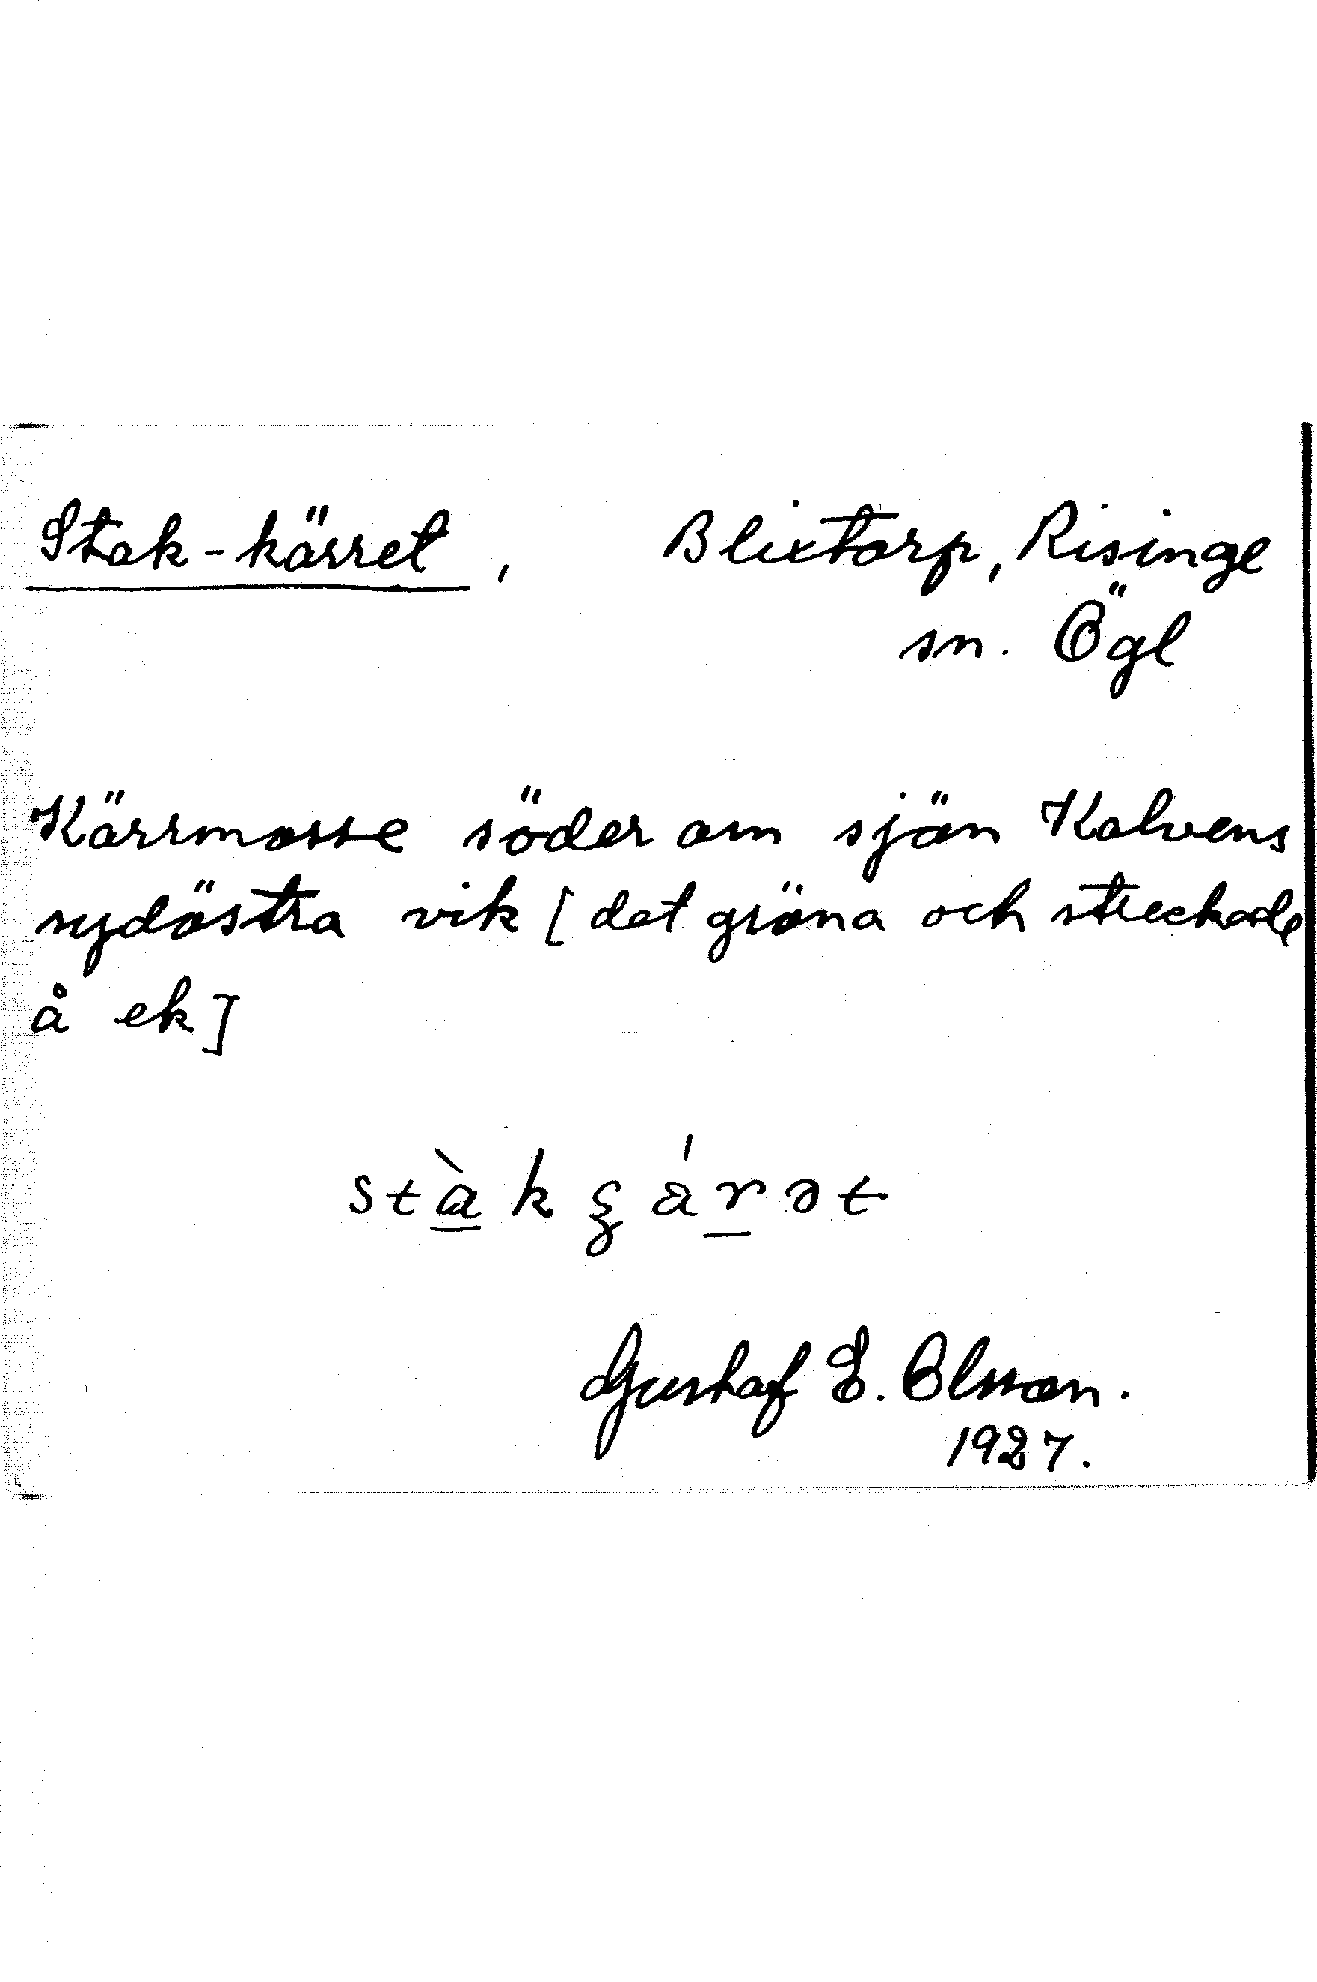 Stak-kärret, Blixtorp, Risinge
sn. Ögl
Kärrmosse söder om sjön Kalvens
sydöstra vik [det gröna och streckade
å ek]
stàkʒárət
Gustaf E. Olsson.
1927.